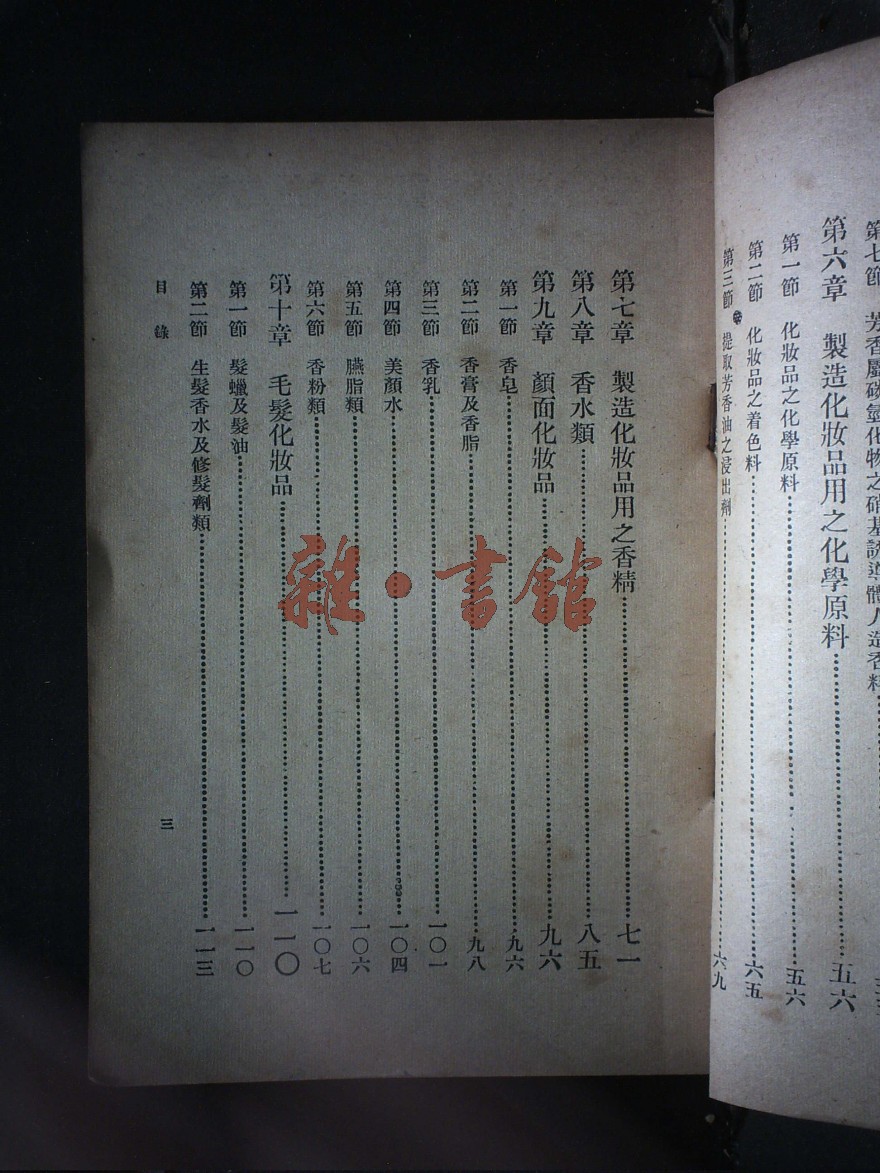 第七節 芳香屬碳氫化物之硝基誘導體人造香料
第六章 製造化妝品用之化學原料 五六
第一節 化妝品之化學原料 五六
第二節 化妝品之着色料 六五
第三節 提取芳香油之浸出劑 六九
第七章 製造化妝品用之香精 七一
第八章 香水類 八五
第九章 顏面化妝品 九六
第一節 香皂 九六
第二節 香膏及香脂 九八
第三節 香乳 一〇一
第四節 美顏水 一〇四
第五節 臙脂類 一〇六
第六節 香粉類 一〇七
第十章 毛髮化妝品 一一〇
第一節 髮蠟及髮油 一一〇
第二節 生髮香水及修髮劑類 一一三
目錄 三
雜·書館